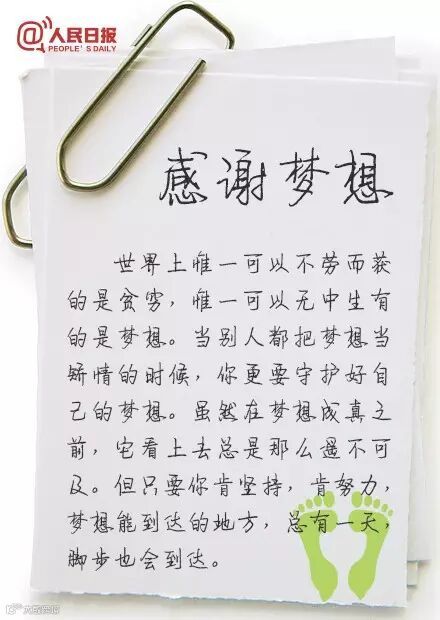 @人民日报
PEOPLE'S DAILY
感谢梦想
世界上惟一可以不劳而获
的是贫穷，惟一可以无中生有
的是梦想。当别人都把梦想当
矫情的时候，你更要守护好自
己的梦想。虽然在梦想成真之
前，它看上去总是那么遥不可
及。但只要你肯坚持，肯努力，
梦想能到达的地方，总有一天，
脚步也会到达。
人民日报